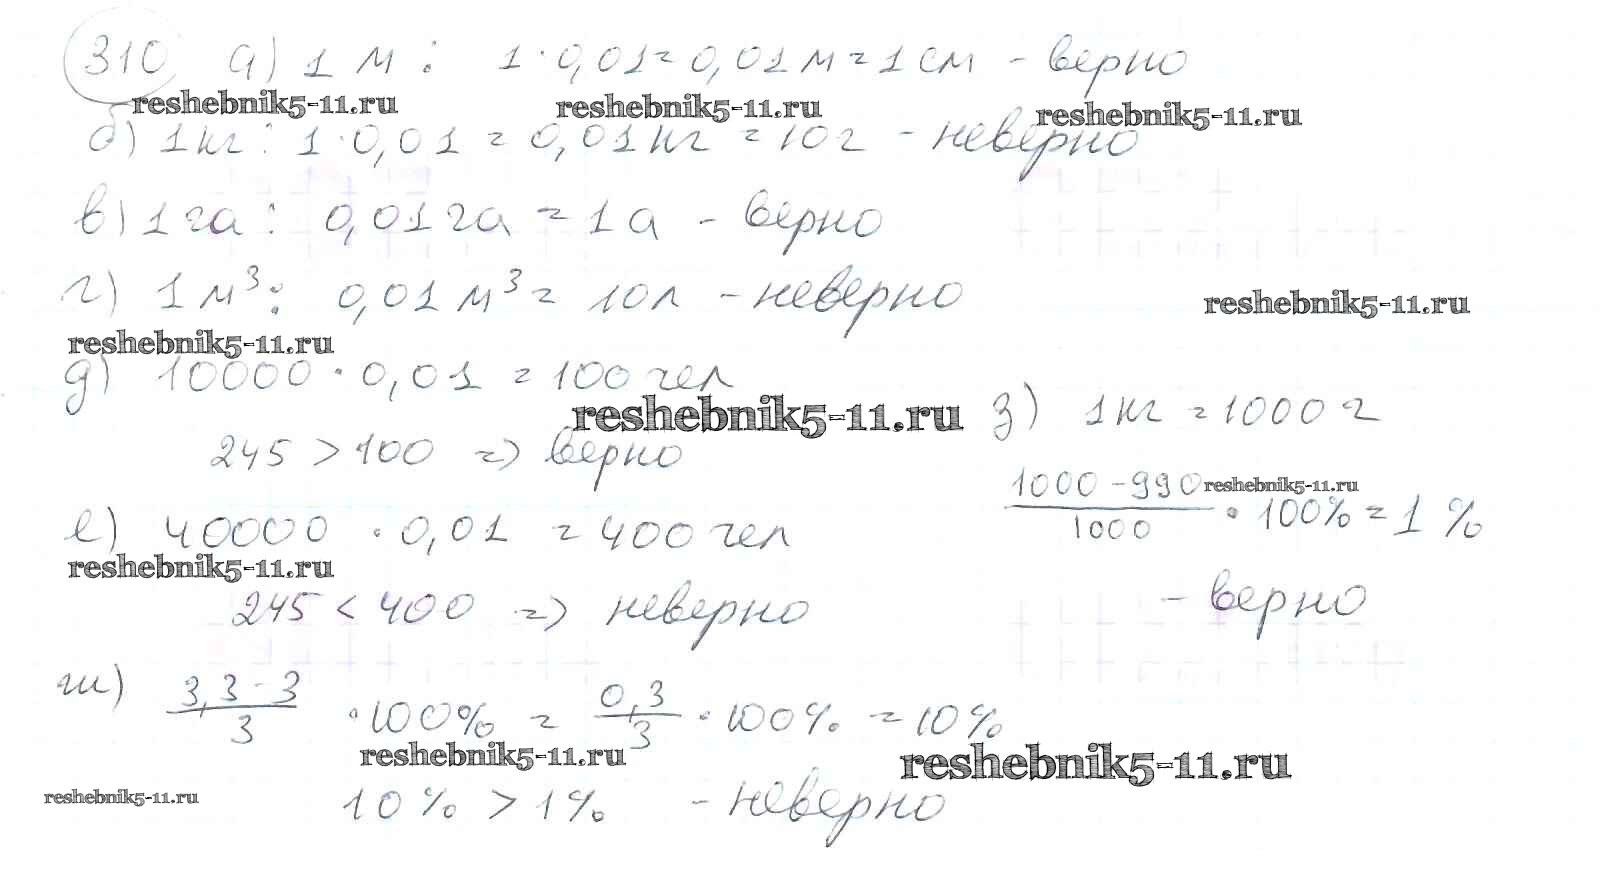 310 а) 1 м : 1 · 0,01 = 0,01 м = 1 см - верно
reshebnik5-11.ru reshebnik5-11.ru reshebnik5-11.ru
б) 1 кг : 1 · 0,01 = 0,01 кг = 10 г - неверно
в) 1 га : 0,01 га = 1 а - верно
г) 1 м³ : 0,01 м³ = 10 л - неверно
reshebnik5-11.ru
reshebnik5-11.ru
д) 10000 · 0,01 = 100 чел
reshebnik5-11.ru
245 > 100 => верно
е) 40000 · 0,01 = 400 чел
reshebnik5-11.ru
245 < 400 => неверно
ж) 3,3 - 3 / 3 · 100% = 0,3 / 3 · 100% = 10%
reshebnik5-11.ru reshebnik5-11.ru
reshebnik5-11.ru
10% > 1% - неверно
з) 1 кг = 1000 г
1000 - 990 / 1000 · 100% = 1 %
reshebnik5-11.ru
- верно